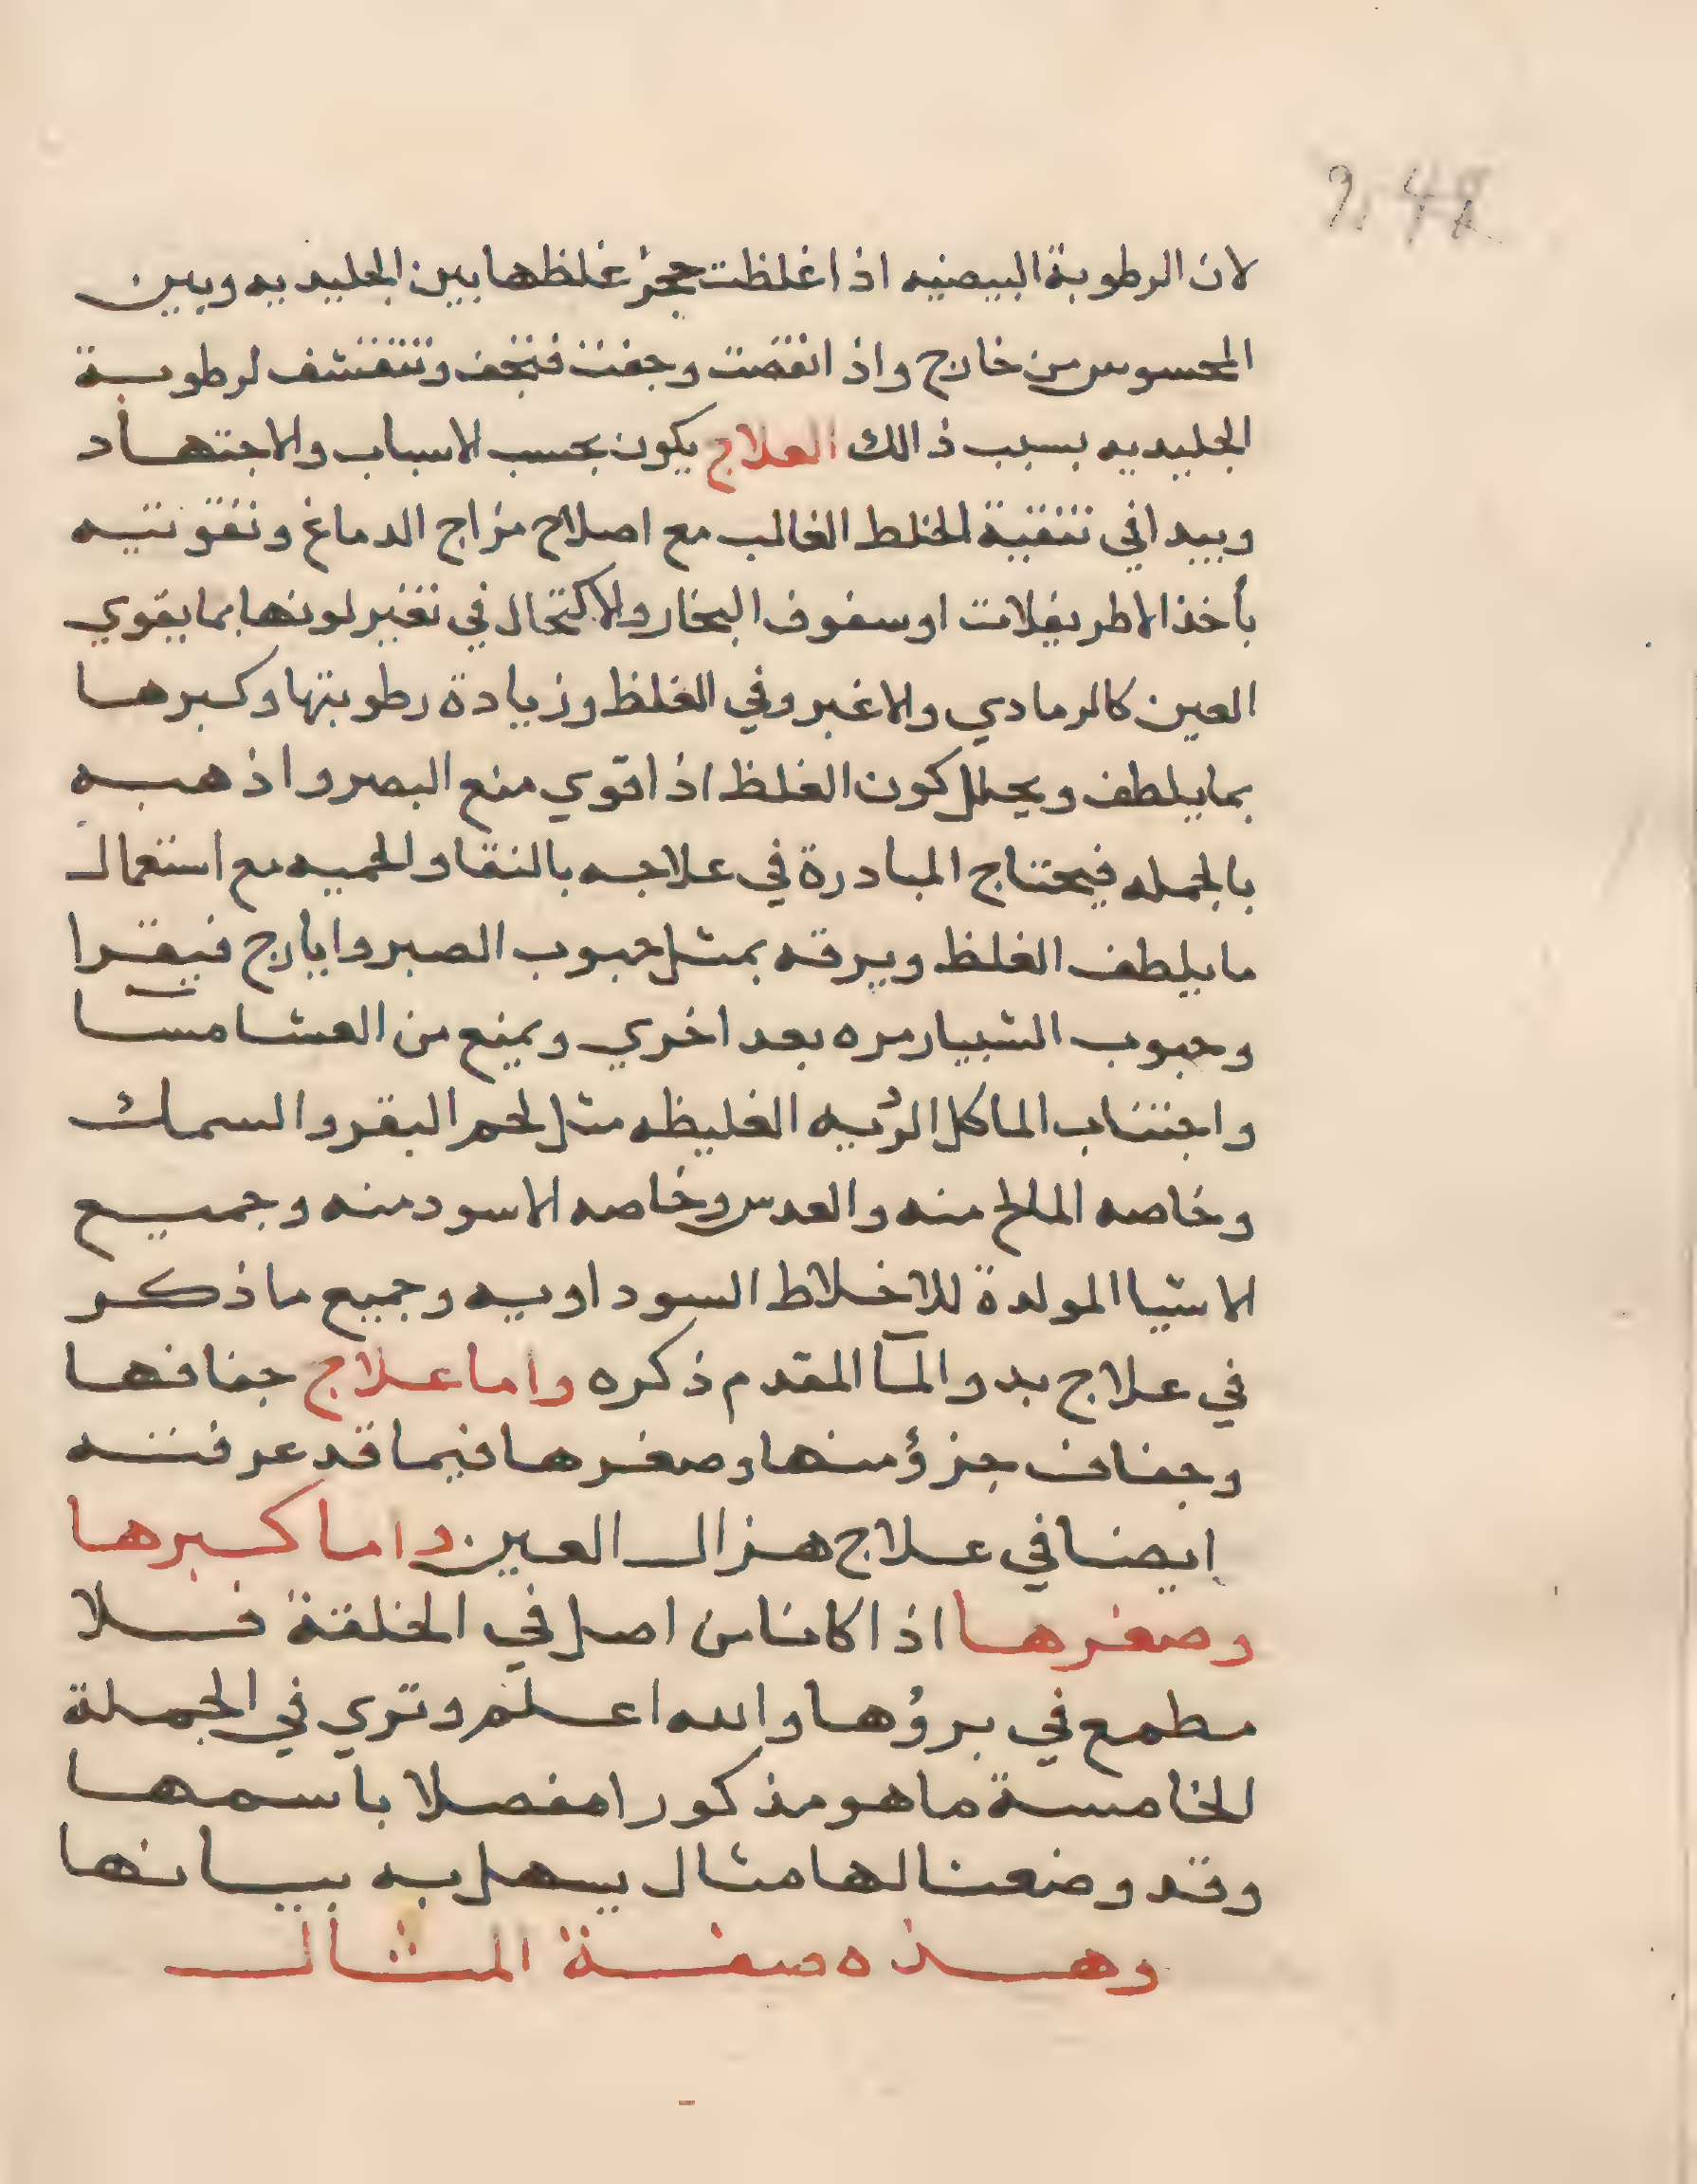 لان الرطوبة البيضيه اذا غلظت حجز غلظها بين الجليديه وبين
المحسوس من خارج واذ انقصت وجفت فتجف وتتقشف لرطوبة
الجليديه بسبب ذالك العلاج يكون بحسب لاسباب والاجتهاد
ويبدا في تنقية الخلط الغالب مع اصلاح مزاج الدماغ وتقويته
بأخذ الاطريفلات اوسفوف البخار والاكتحال في تغير لونها بما يقوي
العين كالرمادي ولاغبر وفي الغلظ وزيادة رطوبتها وكبرها
بما يلطف ويحلل كون الغلظ اذا قوي منع البصر واذهبه
بالجمله فيحتاج المبادرة في علاجه بالنقا والحميه مع استعمال
ما يلطف الغلظ ويرقه بمثل حبوب الصبر وايارج فيقرا
وحبوب الشبيار مره بعد اخري ويمنع من العشا مسا
واجتناب الماكل الرديه الغليظه مثل لحم البقر والسمك
وخاصه المالح منه والعدس وخاصه الاسود منه وجميع
الاشيا المولدة للاخلاط السوداويه وجميع ما ذكر
في علاج بدو المآ المقدم ذكره واما علاج جفافها
وجفاف جزؤ منها وصغرها فيما قد عرفته
ايضا في علاج هزال العين واما كبرها
وصغرها اذا كانا من اصل في الخلقة فلا
مطمع في برؤها والله اعلم وتري في الجملة
الخامسة ما هو مذكورا مفصلا بأسمها
وقد وضعنا لها مثال يسهل به بيانها
وهذه صفة المثال